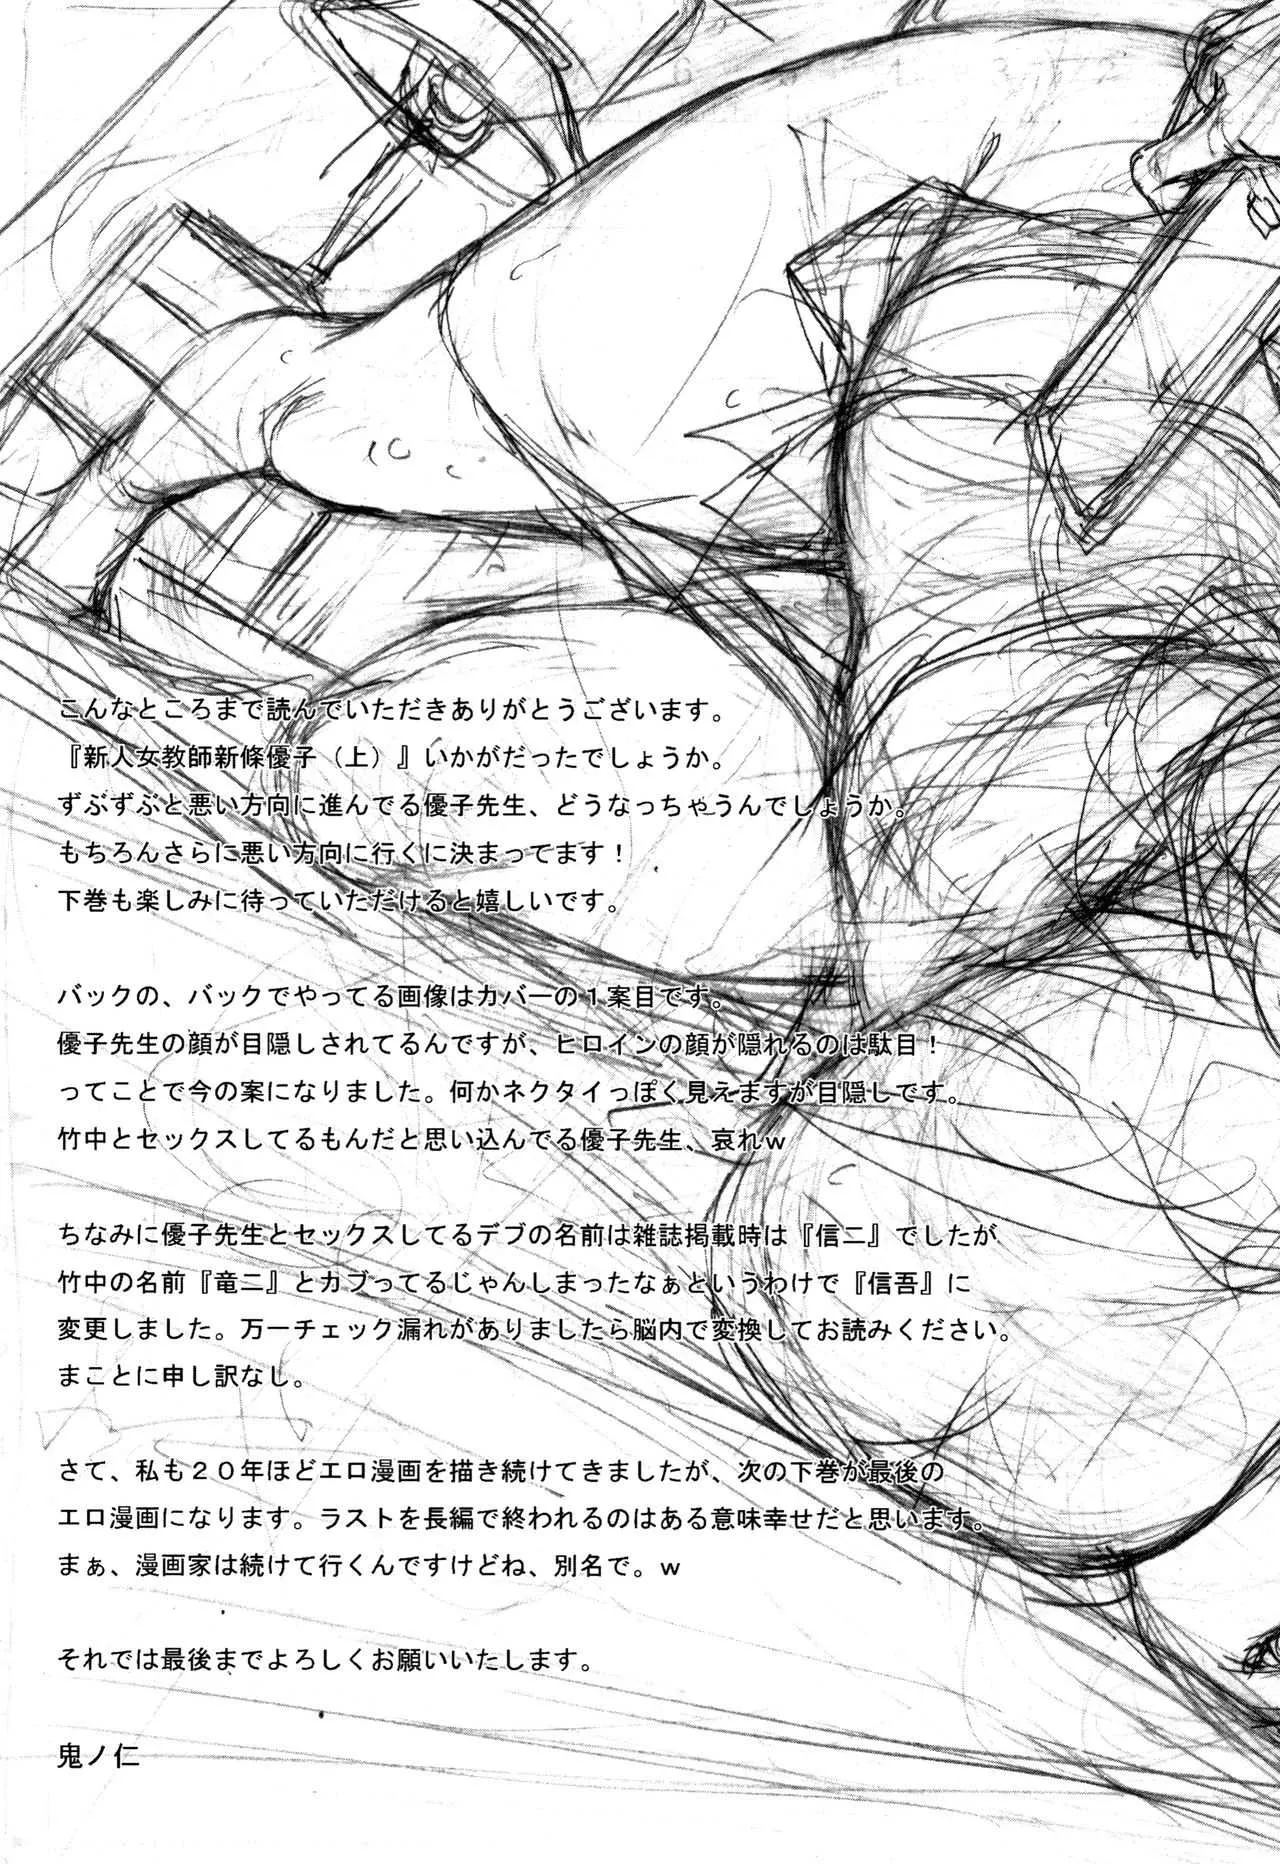 こんなところまで読んでいただきありがとうございます。
『新人女教師新條優子（上）』いかがだったでしょうか。
ずぶずぶと悪い方向に進んでる優子先生、どうなっちゃうんでしょうか。
もちろんさらに悪い方向に行くに決まってます！
下巻も楽しみに待っていただけると嬉しいです。
バックの、バックでやってる画像はカバーの１案目です。
優子先生の顔が目隠しされてるんですが、ヒロインの顔が隠れるのは駄目！
ってことで今の案になりました。何かネクタイっぽく見えますが目隠しです。
竹中とセックスしてるもんだと思い込んでる優子先生、哀れｗ
ちなみに優子先生とセックスしてるデブの名前は雑誌掲載時は『信二』でしたが
竹中の名前『竜二』とカブってるじゃんしまったなぁというわけで『信吾』に
変更しました。万一チェック漏れがありましたら脳内で変換してお読みください。
まことに申し訳なし。
さて、私も２０年ほどエロ漫画を描き続けてきましたが、次の下巻が最後の
エロ漫画になります。ラストを長編で終われるのはある意味幸せだと思います。
まぁ、漫画家は続けて行くんですけどね、別名で。ｗ
それでは最後までよろしくお願いいたします。
鬼ノ仁